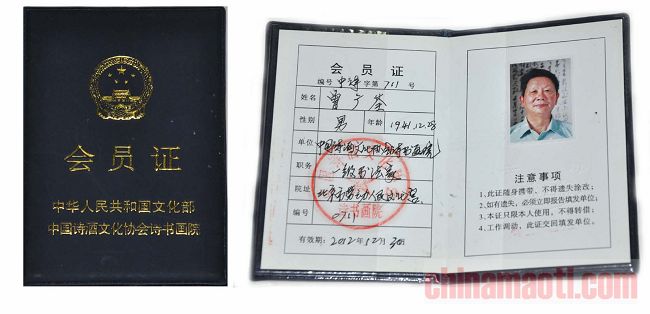 会员证
中华人民共和国文化部
中国诗酒文化协会诗书画院
会员证
编号 中诗字第 701 号
姓名
性别 男 年龄 1941.12.28
单位
职务 一级书法家
院址
编号 0701
有效期: 2012年12月30日
诗书画院
注意事项
1、此证随身携带、不得遗失涂改;
2、如有遗失、必须立即报告填发单位;
3、本证只限本人使用、不得转借;
4、工作调动、此证交回填发单位。
chinamaoti.com